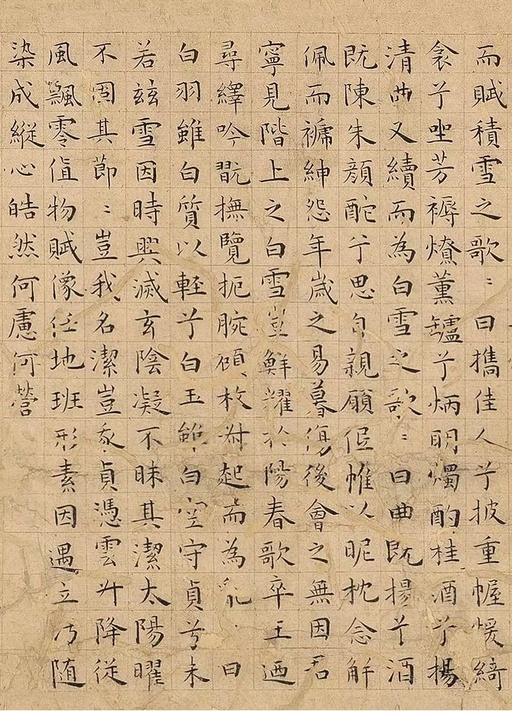 而賦積雪之歌〻曰攜佳人兮披重幄煖綺
衾兮坐芳褥燎薰鑪兮炳明燭酌桂酒兮楊
清曲又續而為白雪之歌〻曰曲既揚兮酒
既陳朱顏酡兮思自親願低帷以昵枕念解
佩而褫紳怨年歲之易暮傷後會之無因君
寧見階上之白雪豈鮮耀於陽春歌卒王迺
尋繹吟翫撫覽扼腕顧枚叔起而為亂〻曰
白羽雖白質以輕兮白玉雖白空守貞兮未
若茲雪因時興滅玄陰凝不昧其潔太陽曜
不固其節〻豈我名潔豈我貞憑雲升降從
風飄零值物賦像任地班形素因遇立乃随
染成縱心皓然何慮何營